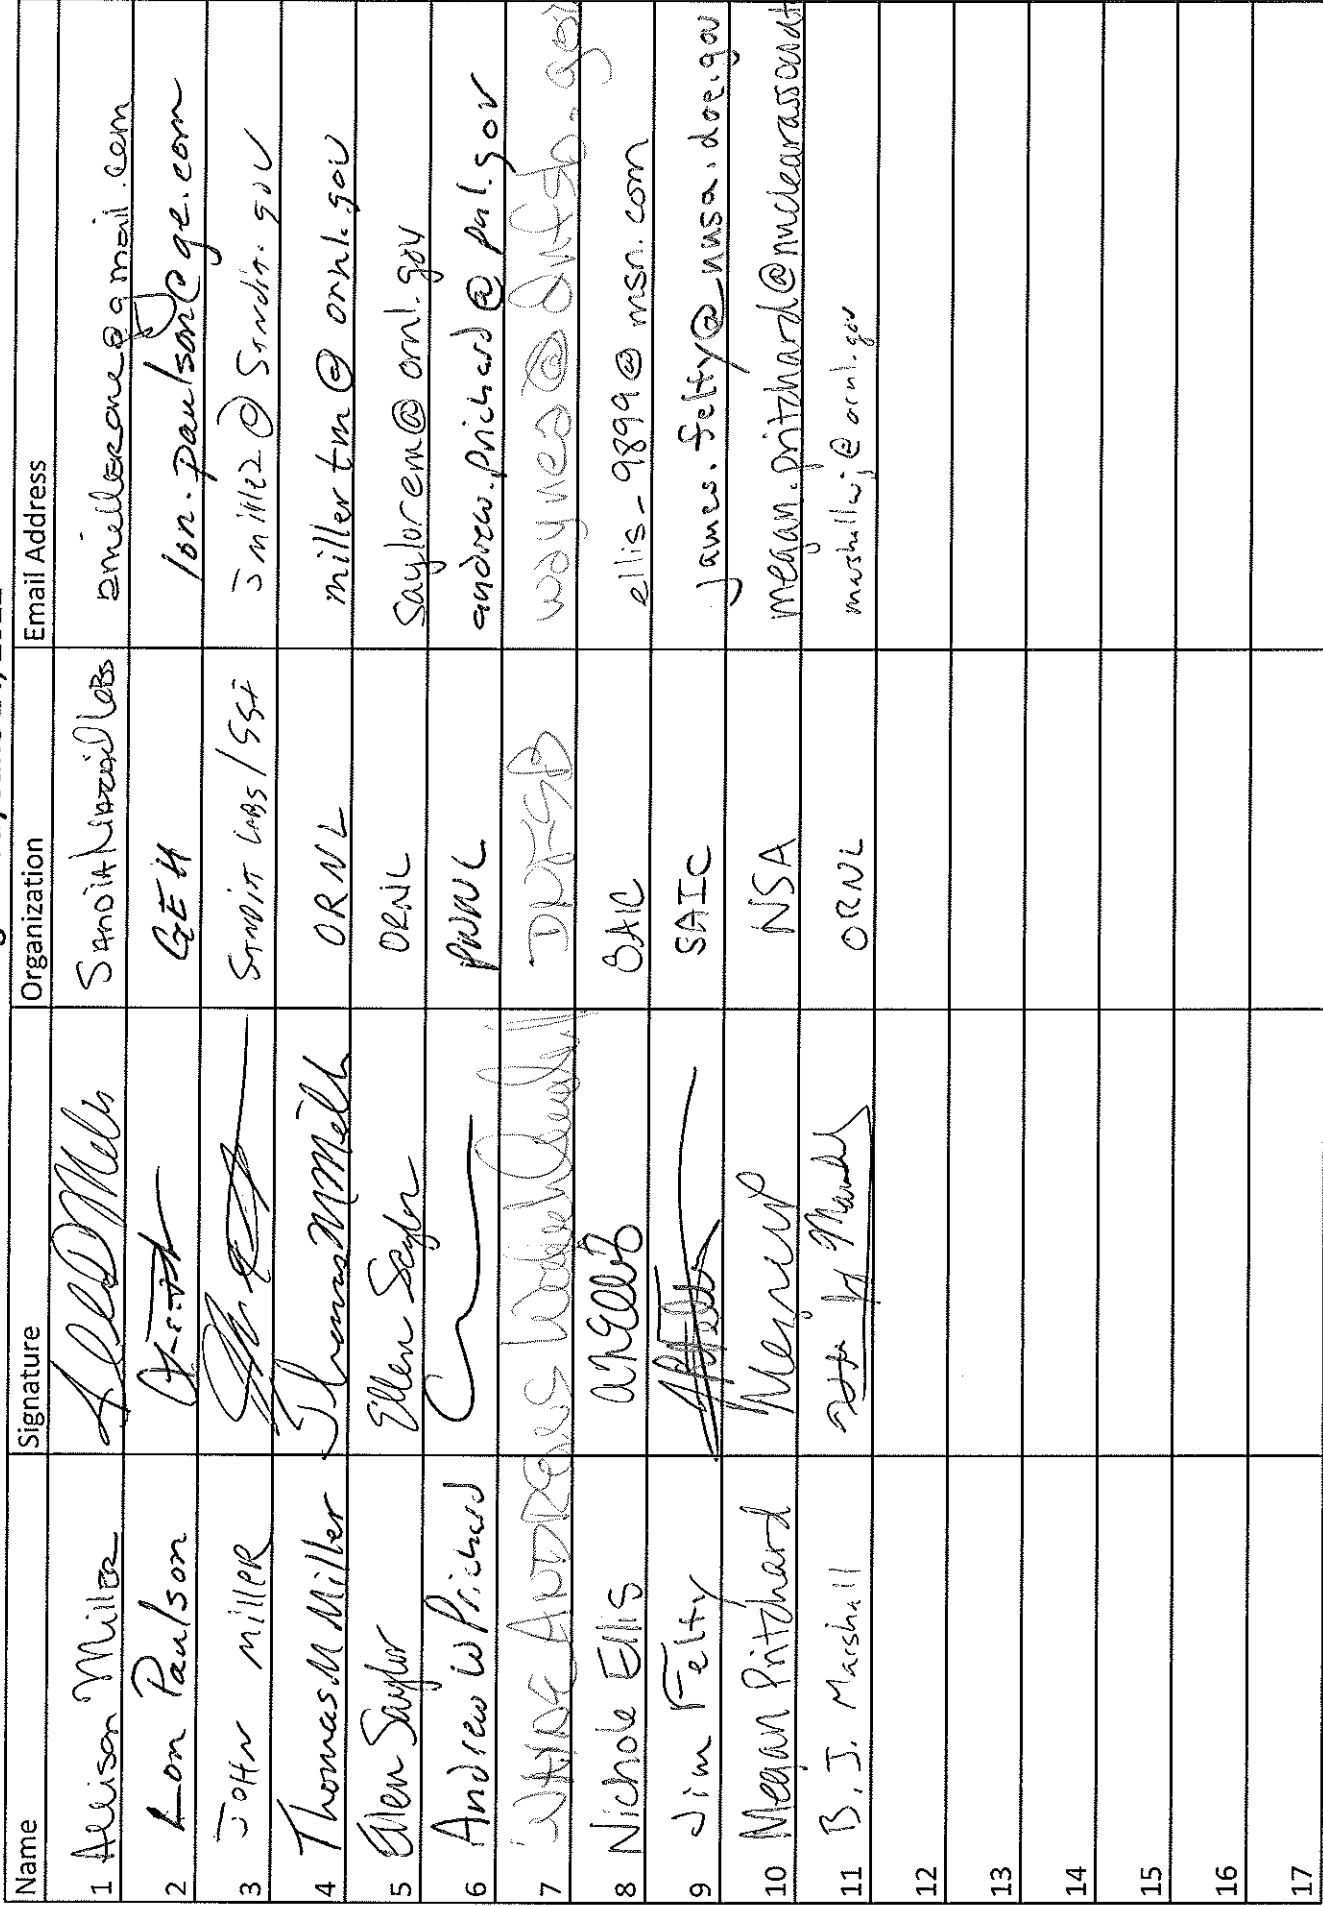 Name Signature Organization Email Address
1 Allison Miller SANDIA National Labs amillerone@gmail.com
2 Lon Paulson GEH lon.paulson@ge.com
3 JOHN MILLER SANDIA LABS/ jmille2@sandia.gov
4 Thomas M Miller Thomas M Miller ORNL millertm@ornl.gov
5 Ellen Saylor Ellen Saylor ORNL saylorem@ornl.gov
6 Andrew W Prichard PNNL andrew.prichard@pnl.gov
7 WAYNE ANDREWS DNFSB waynea@dnfsb.gov
8 Nichole Ellis SAIC ellis_9899@msn.com
9 Jim Felty SAIC james.felty@nnsa.doe.gov
10 Megan Pritchard NSA
11 B. J. Marshall ORNL marshallwj@ornl.gov
12
13
14
15
16
17